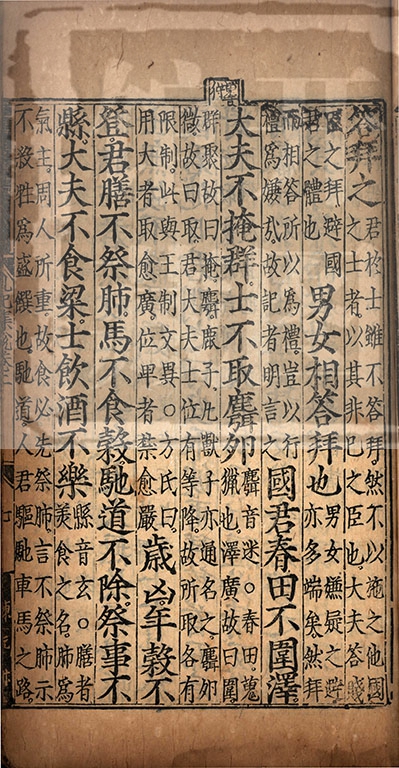 答拜之君於士雖不答拜然不以施之他國
之士者以其非己之臣也大夫答賤
臣之拜避國
君之體也男女相答拜也男女嫌疑之辟
亦多端矣然拜
而相答所以爲禮豈以行
禮爲嫌哉故記者明言之國君春田不圍澤
大夫不掩群士不取麛卵麛音迷○春田蒐
獵也澤廣故曰圍
群聚故曰掩麛鹿子凡獸子亦通名之麛卵
微故曰取君大夫士位有等降故所取各有
限制此與王制文異○方氏曰
用大者取愈廣位卑者禁愈嚴歲凶年穀不
登君膳不祭肺馬不食穀馳道不除祭事不
縣大夫不食粱士飲酒不樂縣音玄○膳者
美食之名肺爲
氣主周人所重故食必先祭肺言不祭肺示
不殺牲爲盛饌也馳道人君驅馳車馬之路